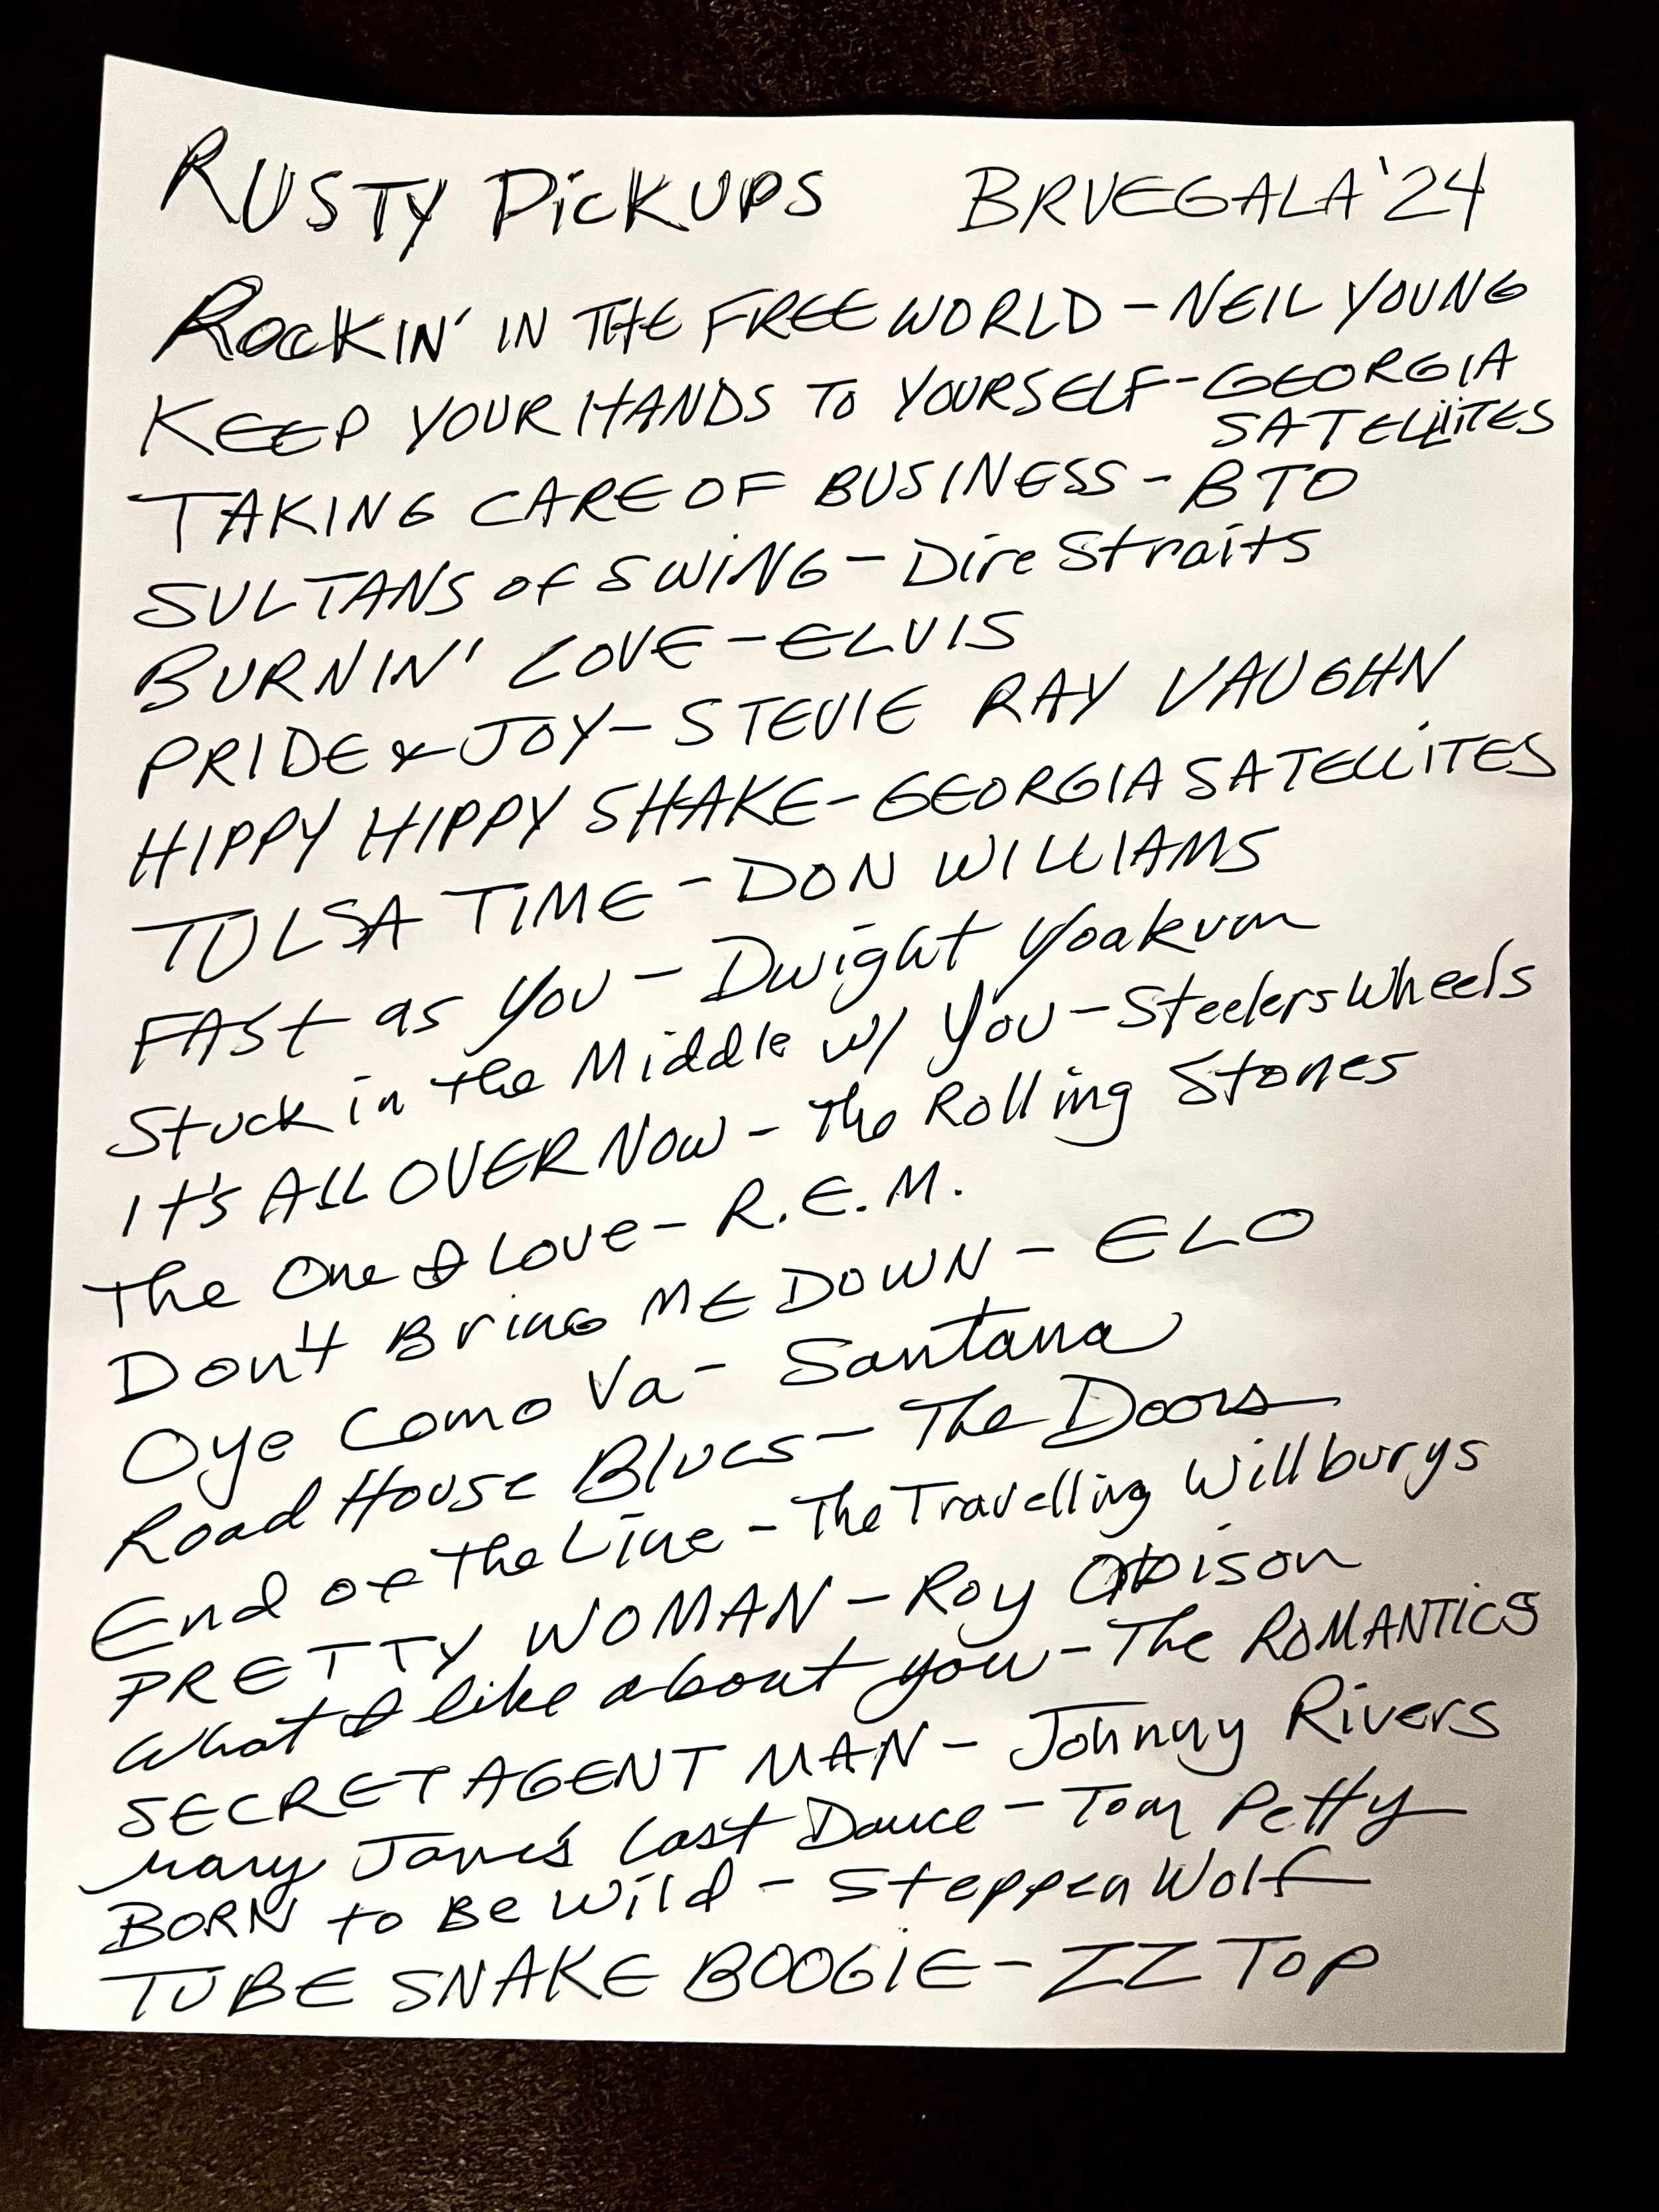 RUSTY PICKUPS BRVEGALA '24
ROCKIN' IN THE FREE WORLD - NEIL YOUNG
KEEP YOUR HANDS TO YOURSELF - GEORGIA
SATELLITES
TAKING CARE OF BUSINESS - BTO
SULTANS of SWiNG - Dire Straits
BURNIN' LOVE - ELVIS
PRIDE & JOY - STEVIE RAY VAUGHN
HIPPY HIPPY SHAKE - GEORGIA SATELLiTES
TULSA TIME - DON WILLIAMS
FASt as You - Dwight Yoakum
Stuck in the Middle w/ You - Steelers Wheels
It's ALL OVER NOW - The Rolling Stones
The One I Love - R.E.M.
Don't Bring ME DOWN - ELO
Oye Como Va - Santana
Road House Blues - The Doors
End of the Line - The Travelling Willburys
PRETTY WOMAN - Roy Orbison
What I like about you - The ROMANTICS
SECRET AGENT MAN - Johnny Rivers
Mary Jane's Last Dance - Tom Petty
BORN to Be Wild - Steppen Wolf
TUBE SNAKE BOOGiE - ZZ TOP